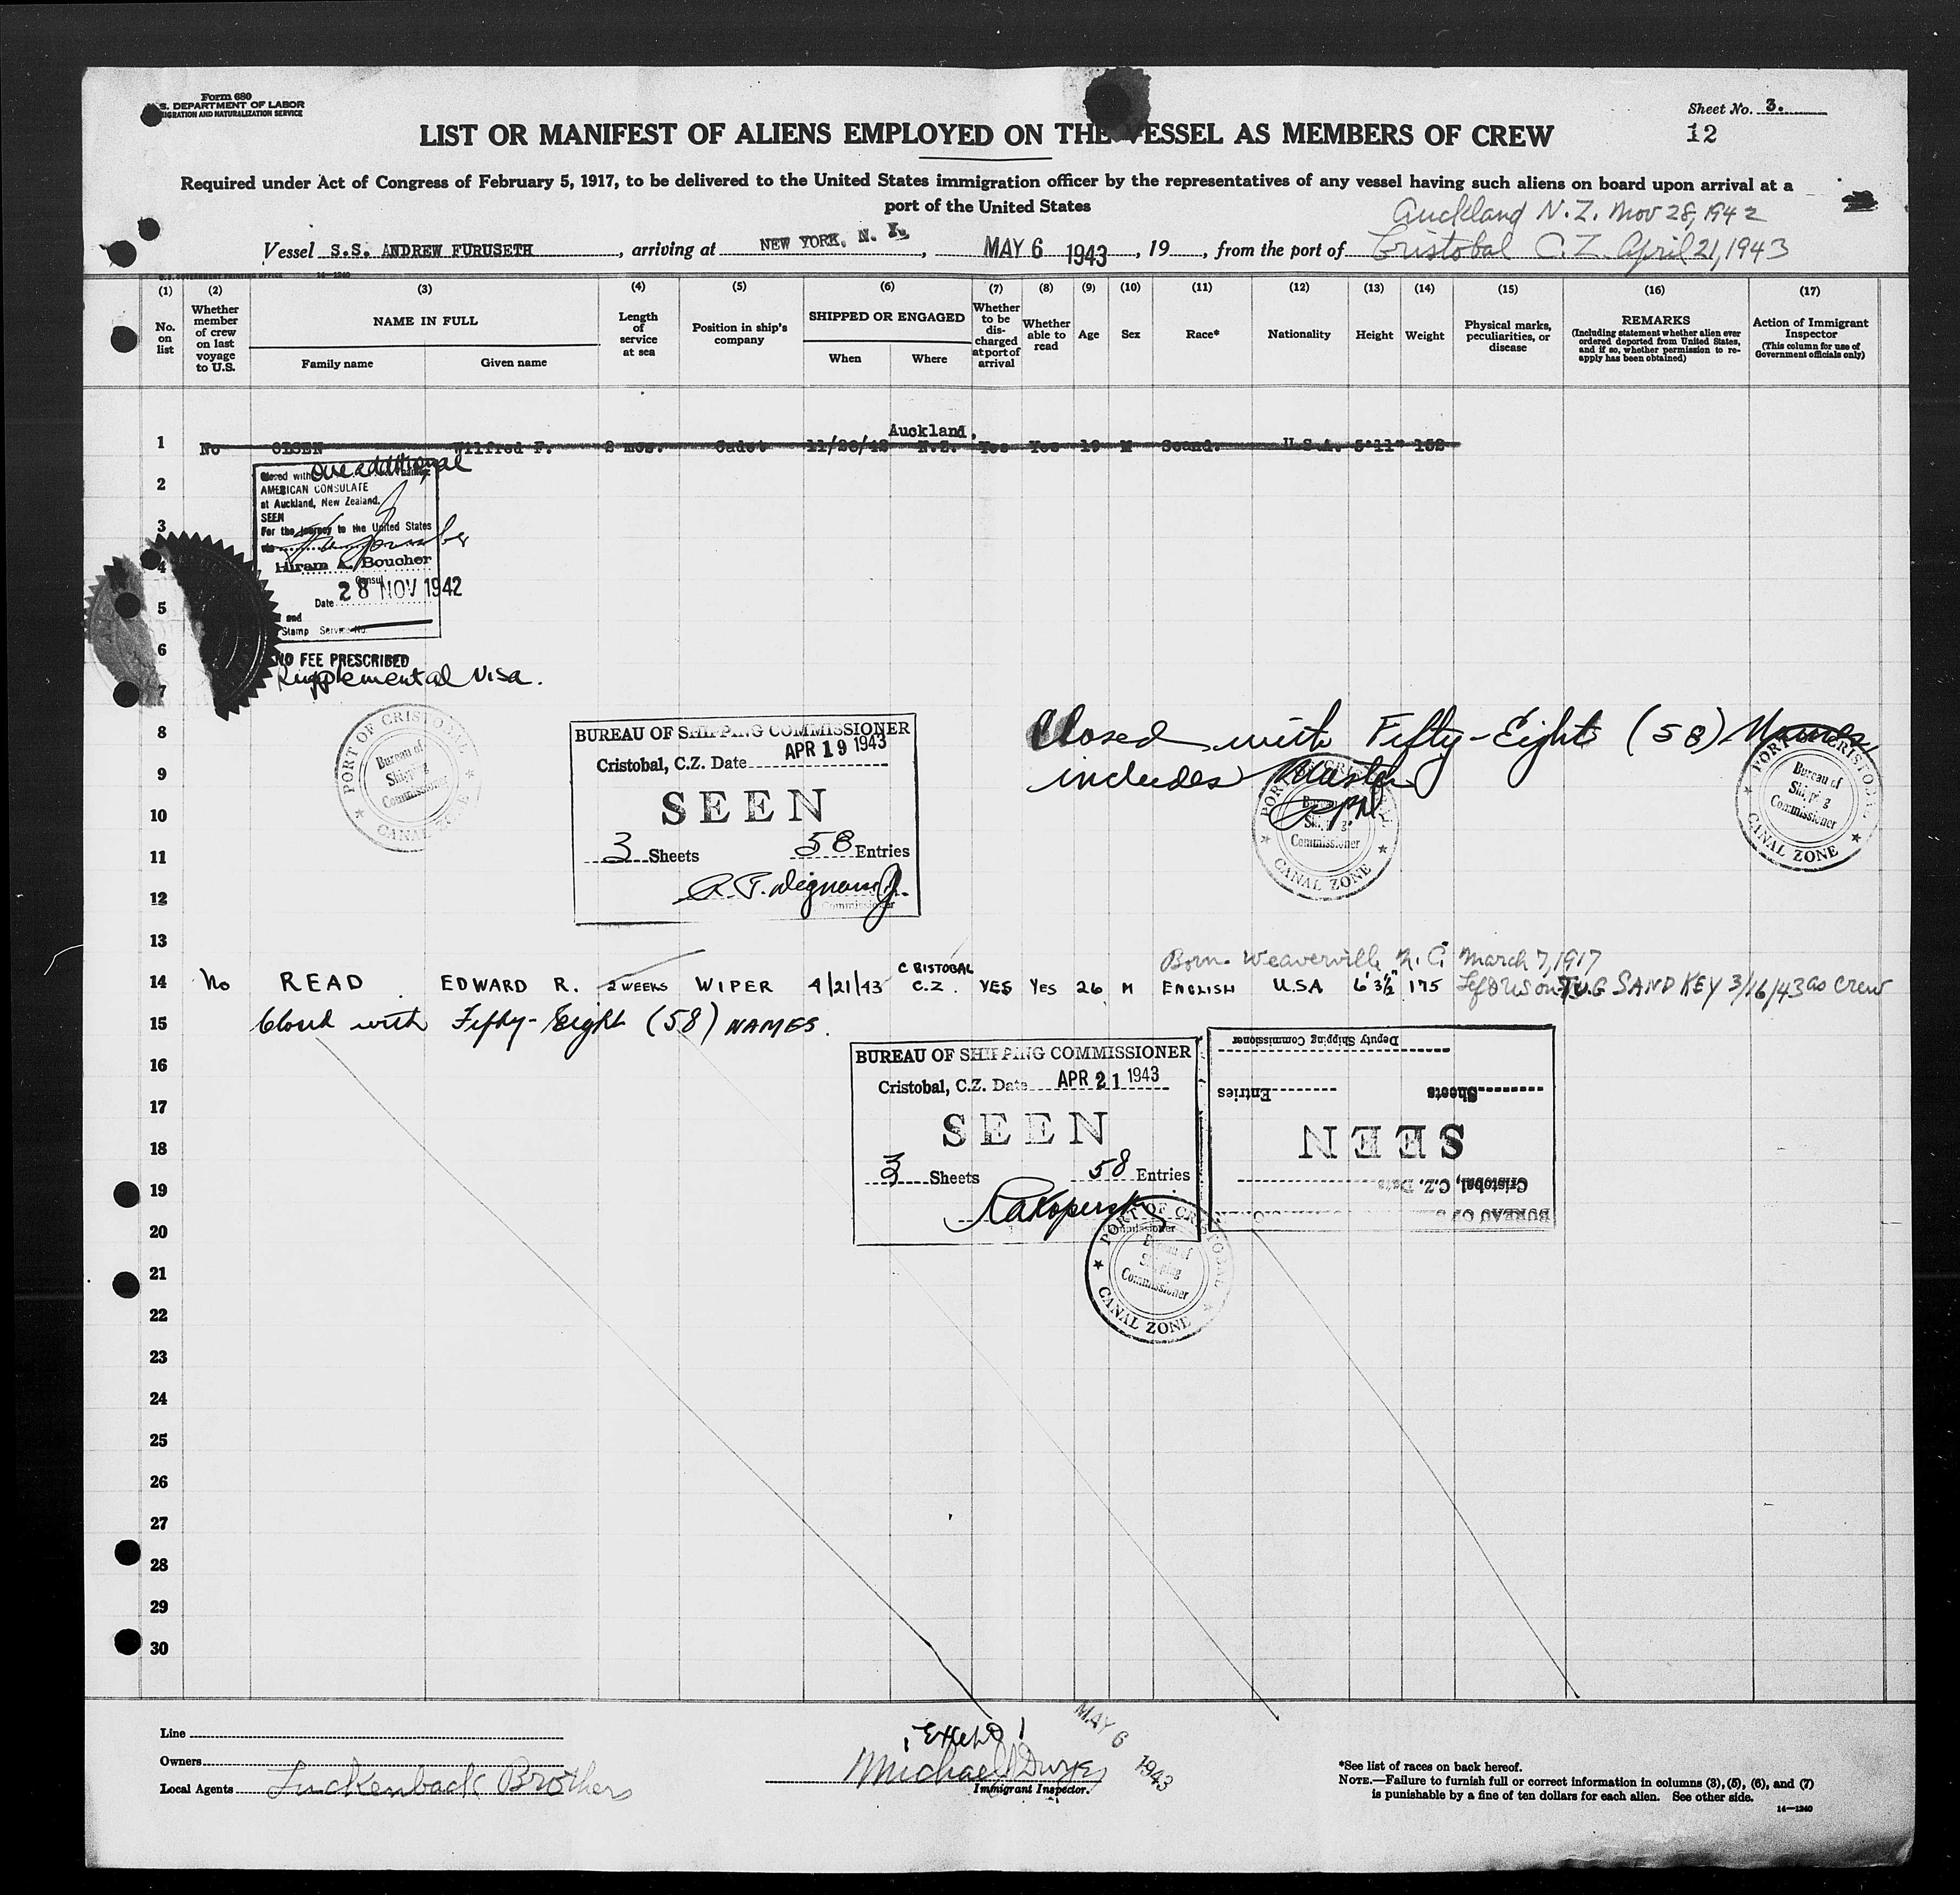 Form 680
S. DEPARTMENT OF LABOR
IGRATION AND NATURALIZATION SERVICE
Sheet No. 3.
12
LIST OR MANIFEST OF ALIENS EMPLOYED ON THE VESSEL AS MEMBERS OF CREW
Required under Act of Congress of February 5, 1917, to be delivered to the United States immigration officer by the representatives of any vessel having such aliens on board upon arrival at a
port of the United States
Auckland N.Z. Nov 28, 1942
Vessel S.S. ANDREW FURUSETH, arriving at NEW YORK, N. Y., MAY 6 1943, 19, from the port of Cristobal C.Z. April 21, 1943
U.S. GOVERNMENT PRINTING OFFICE 14-1240
(1) (2) (3) (4) (5) (6) (7) (8) (9) (10) (11) (12) (13) (14) (15) (16) (17)
No. on list
Whether member of crew on last voyage to U.S.
NAME IN FULL
Family name
Given name
Length of service at sea
Position in ship's company
SHIPPED OR ENGAGED
When
Where
Whether to be discharged at port of arrival
Whether able to read
Age
Sex
Race*
Nationality
Height
Weight
Physical marks, peculiarities, or disease
REMARKS
(Including statement whether alien ever ordered deported from United States, and if so, whether permission to reapply has been obtained)
Action of Immigrant Inspector
(This column for use of Government officials only)
Auckland,
1 No OLSEN Wilfred F. 2 mos. Cadet 11/28/42 N.Z. Yes Yes 19 M Scand. U.S.A. 5'11" 152
Closed with one additional
2 AMERICAN CONSULATE
at Auckland, New Zealand.
SEEN
3 For the journey to the United States
4 Hiram A. Boucher
Consul
5 Date 28 NOV 1942
and
Stamp Service No.
6 NO FEE PRESCRIBED
7 Supplemental Visa.
8 Closed with Fifty-Eight (58) Names
includes Master
PORT OF CRISTOBAL
Bureau of Shipping Commissioner
CANAL ZONE
BUREAU OF SHIPPING COMMISSIONER
Cristobal, C.Z. Date APR 19 1943
SEEN
3 Sheets 58 Entries
Commissioner
PORT OF CRISTOBAL
Bureau of Shipping Commissioner
CANAL ZONE
PORT OF CRISTOBAL
Bureau of Shipping Commissioner
CANAL ZONE
9
10
11
12
13
Born Weaverville N.C. March 7, 1917
14 No READ EDWARD R. 2 WEEKS WIPER 4/21/43 CRISTOBAL C.Z. YES YES 26 M ENGLISH U.S.A 6' 3½" 175 Left US on TUG SAND KEY 3/16/43 as crew
15 Closed with Fifty-Eight (58) NAMES.
BUREAU OF SHIPPING COMMISSIONER
Cristobal, C.Z. Date APR 21 1943
SEEN
3 Sheets 58 Entries
Commissioner
BUREAU OF
Cristobal, C.Z. Date
SEEN
Sheets Entries
Deputy Shipping Commissioner
PORT OF CRISTOBAL
Bureau of Shipping Commissioner
CANAL ZONE
16
17
18
19
20
21
22
23
24
25
26
27
28
29
30
Line
Owners
Local Agents Luckenback Brothers
Michael Dwyer
Immigrant Inspector.
MAY 6 1943
*See list of races on back hereof.
NOTE.—Failure to furnish full or correct information in columns (3), (5), (6), and (7)
is punishable by a fine of ten dollars for each alien. See other side.
14—1240